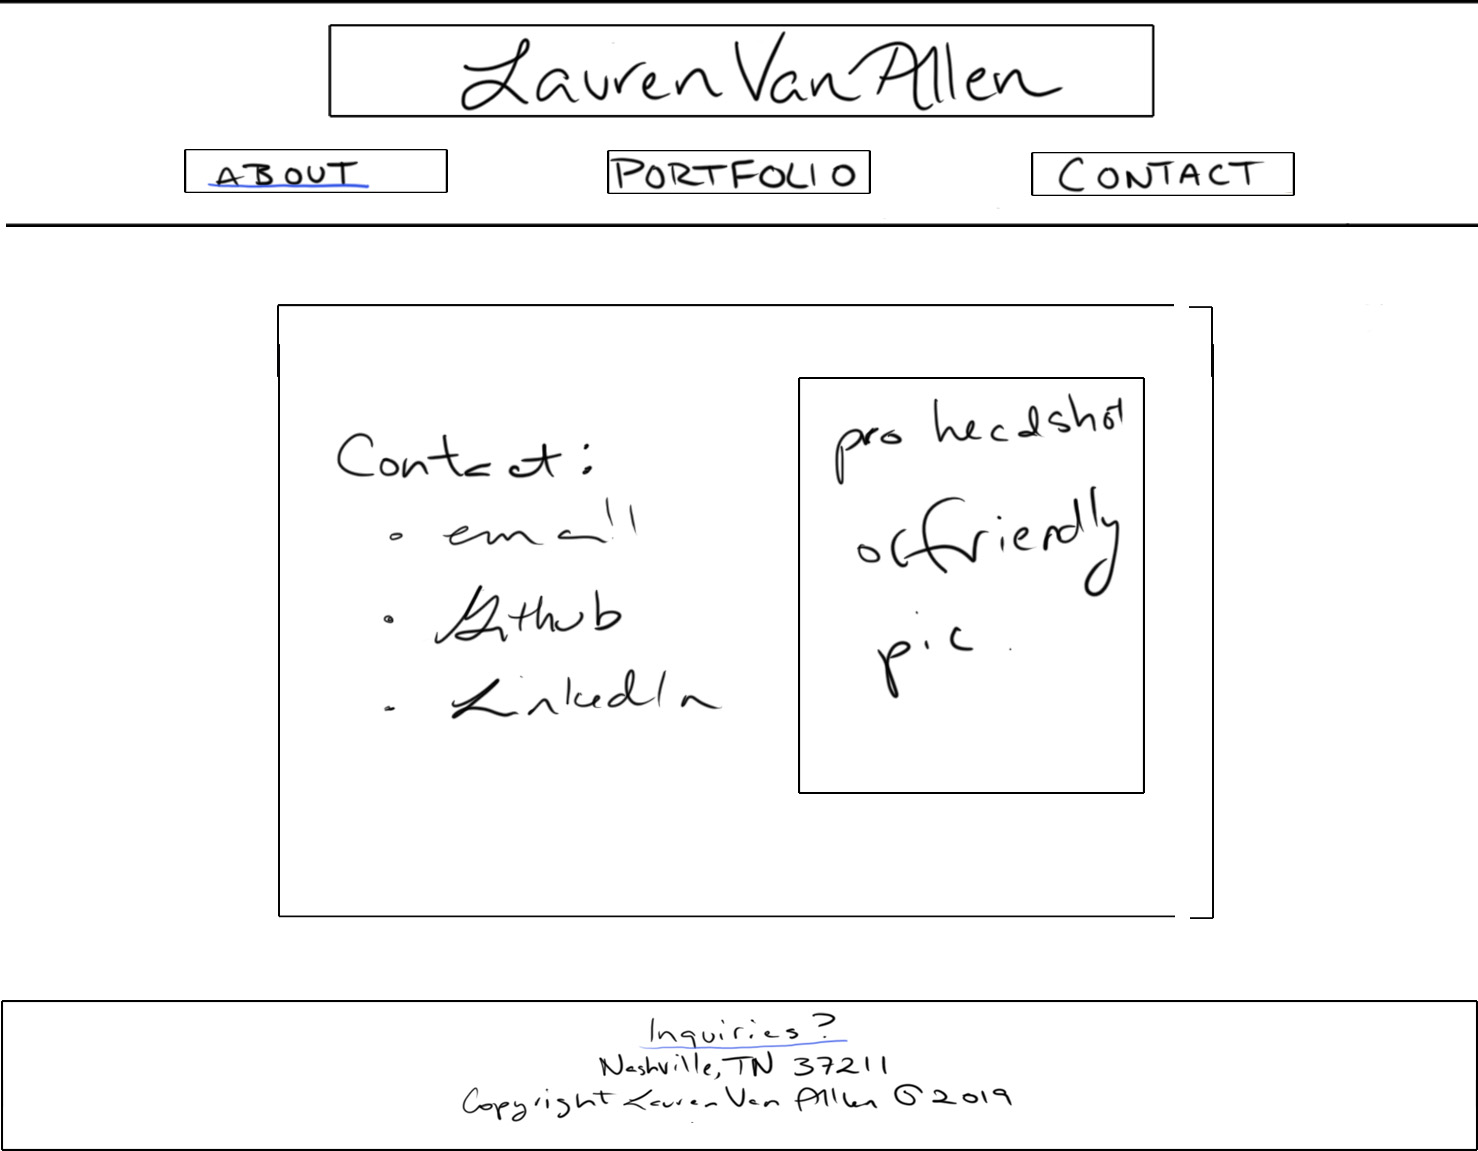 Lauren Van Allen
ABOUT
PORTFOLIO
CONTACT
Contact:
• email
• Github
• LinkedIn
pro headshot
or friendly
pic.
Inquiries?
Nashville, TN 37211
Copyright Lauren Van Allen © 2019